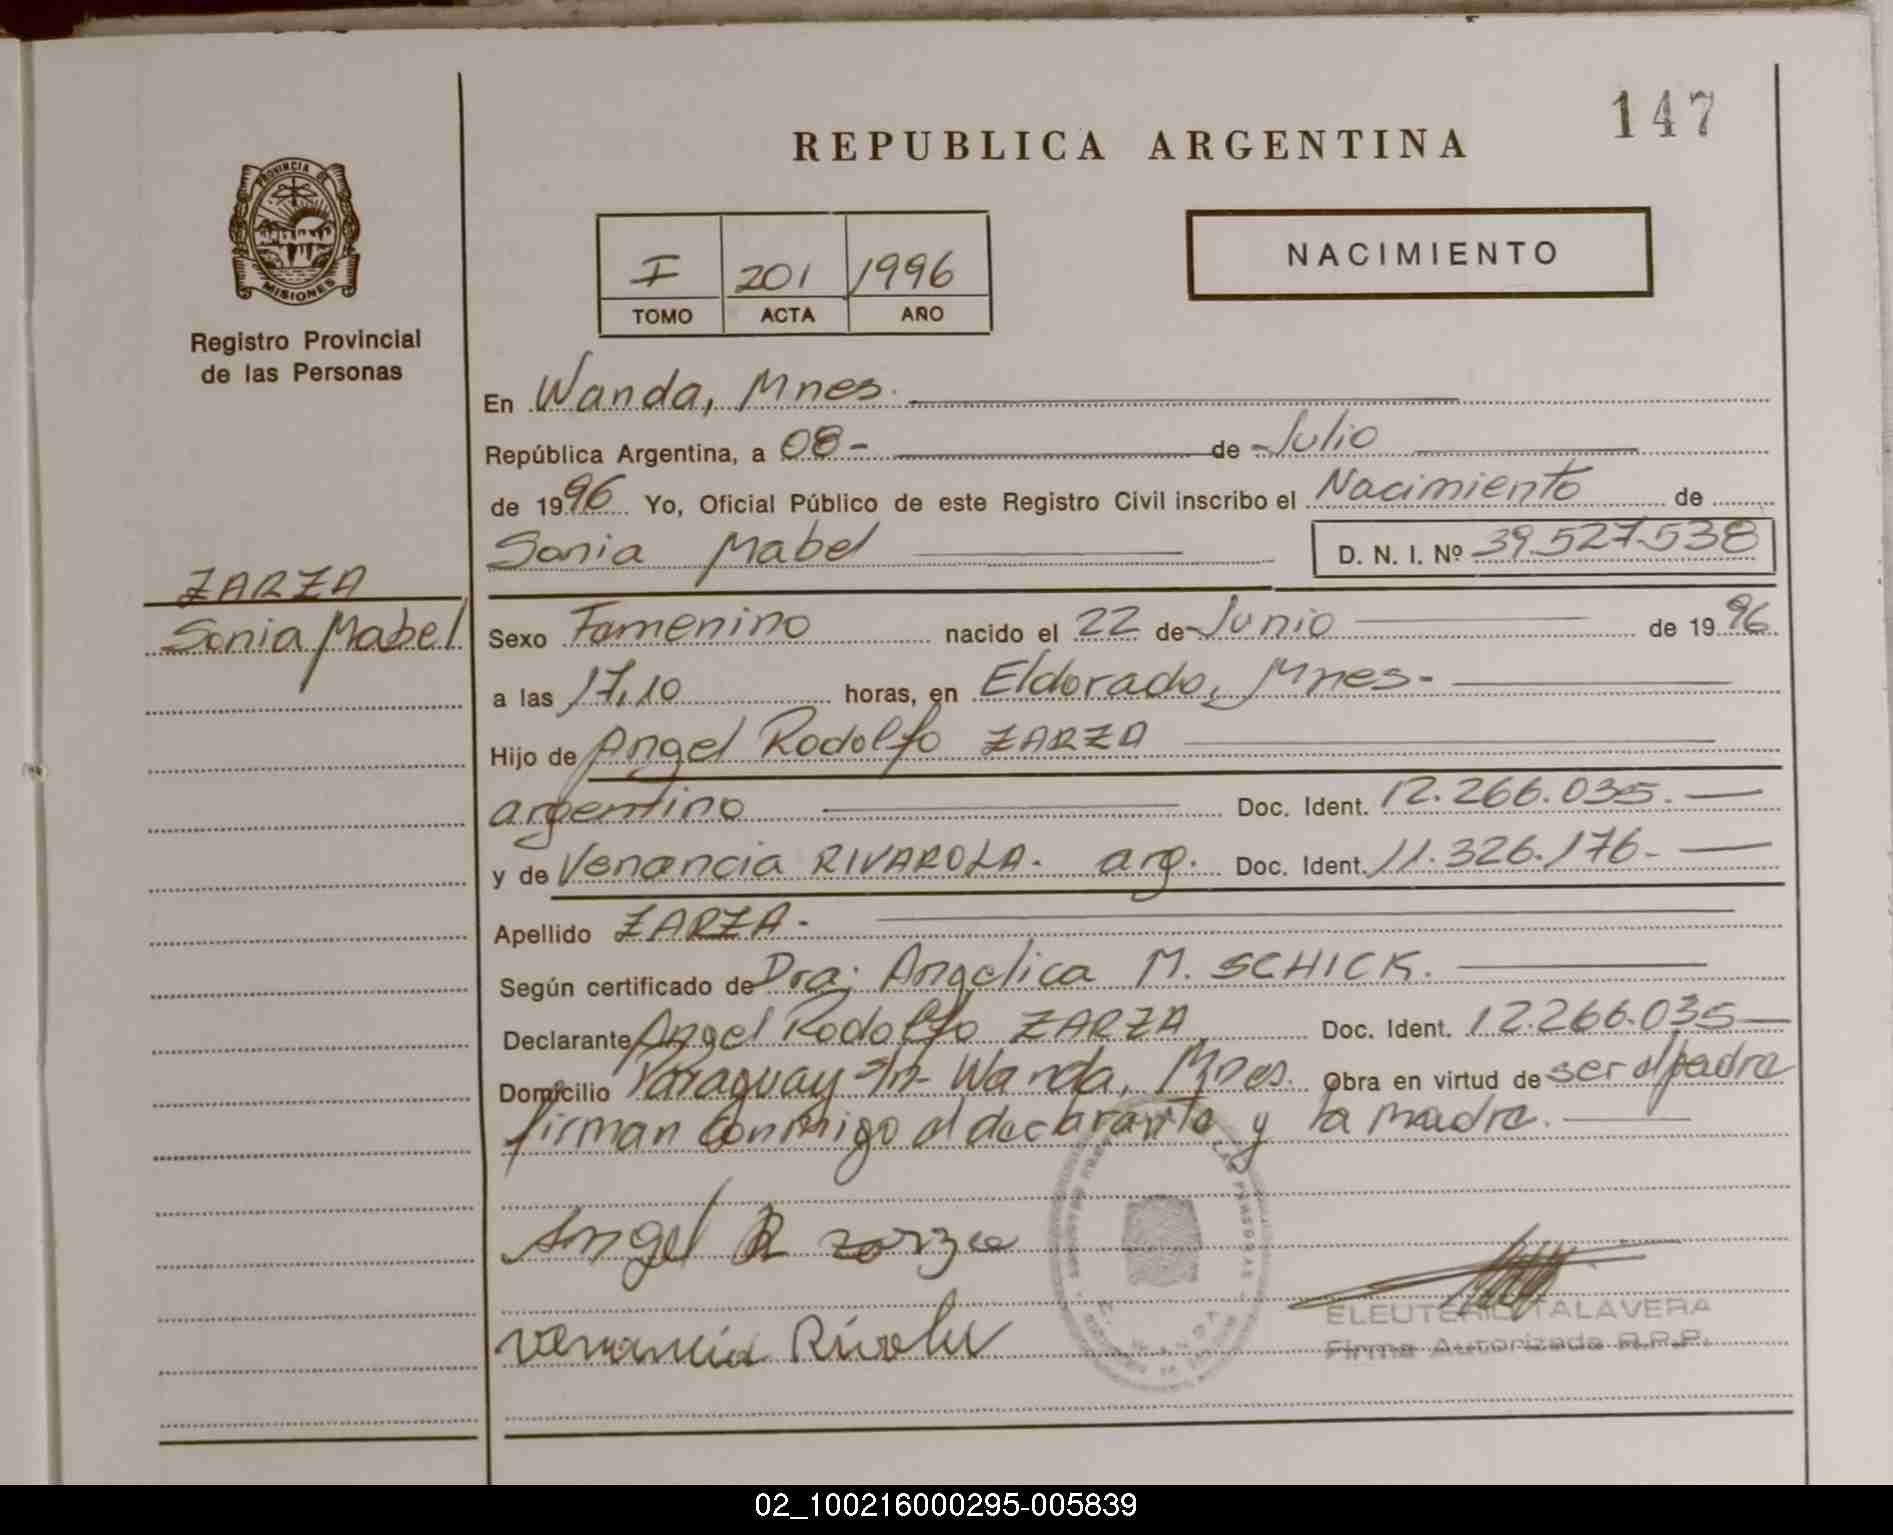 147
REPUBLICA ARGENTINA
PROVINCIA DE
MISIONES
Registro Provincial
de las Personas
NACIMIENTO
I 201 1996
TOMO ACTA AÑO
En Wanda, Mnes.
República Argentina, a 08- de Julio
de 1996 Yo, Oficial Público de este Registro Civil inscribo el Nacimiento de
Sonia Mabel D. N. I. Nº 39.527.538
ZARZA
Sonia Mabel
Sexo Femenino nacido el 22 de Junio de 1996
a las 17,10 horas, en Eldorado, Mnes-
Hijo de Angel Rodolfo ZARZA
argentino Doc. Ident. 12.266.035.-
y de Venancia RIVAROLA. arg. Doc. Ident. 11.326.176.-
Apellido ZARZA.-
Según certificado de Dra: Angelica M. SCHICK.
Declarante Angel Rodolfo ZARZA Doc. Ident. 12.266.035-
Domicilio Paraguay s/n- Wanda, Mnes. Obra en virtud de ser el padre
firman conmigo el declarante y la madre.
Angel R zarza
Venancia
ELEUTERIO TALAVERA
Firma Autorizada R.P.P.
02_100216000295-005839